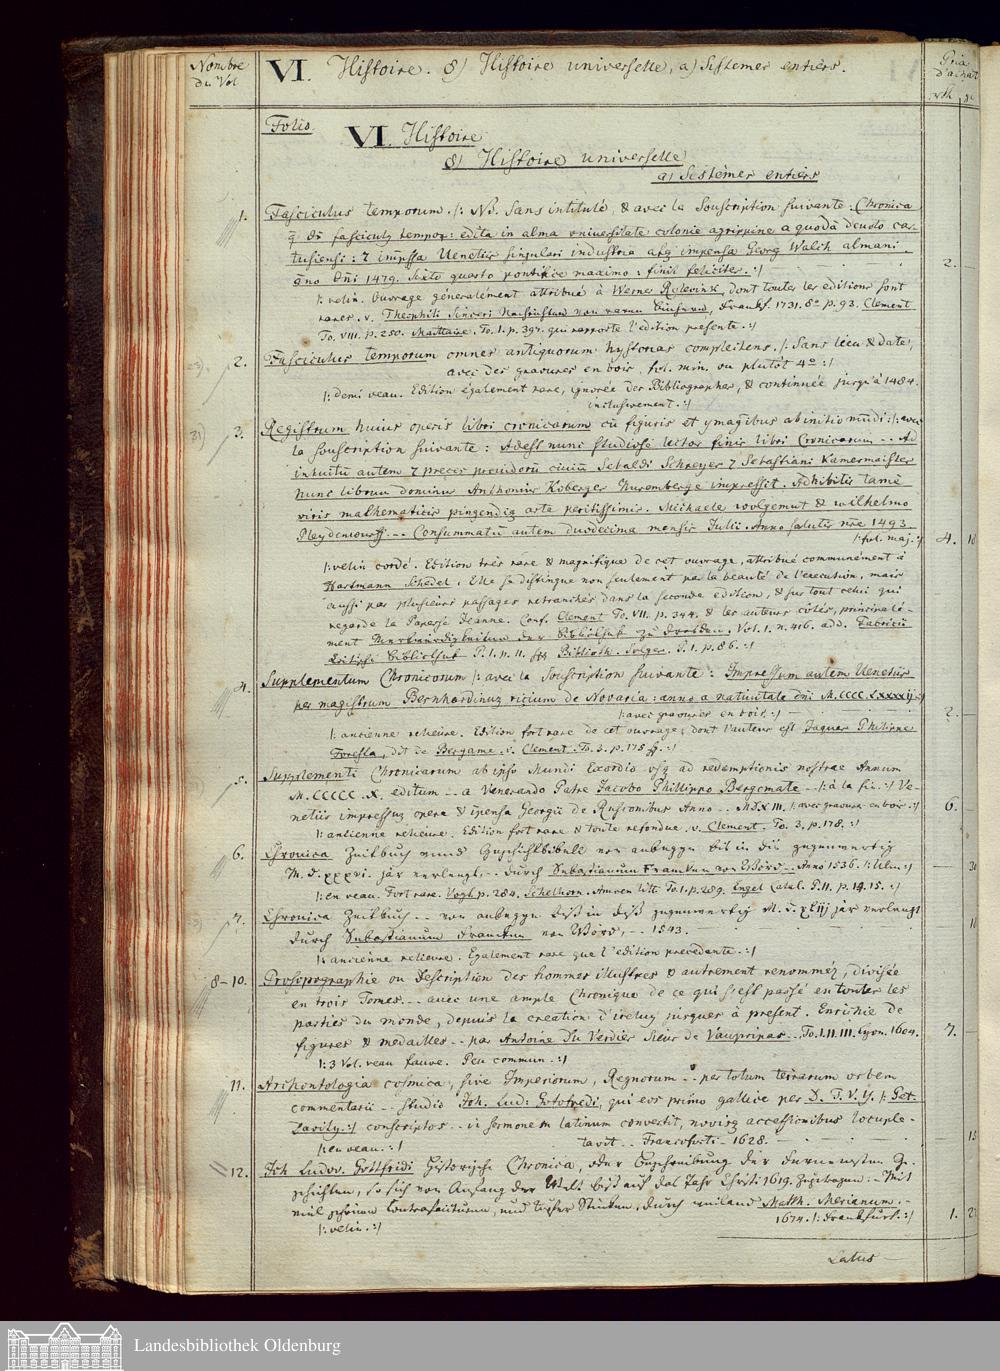 Nombre du Vol
VI. Histoire. 8) Histoire universelle, a) Sistemes entiers.
Prix d'achat
rth
Folio.
VI. Histoire
8) Histoire universelle
a) Sistèmes entiers
1. Fasciculus temporum. /: NB. Sans intitulé, & avec la Souscription suivante: Chronica
q̄ dr̄ fasciculꝫ tempoꝝ: edita in alma universitate colonie agrippine a quodā devoto car-
tusiensi: ⁊ impssa Uenetiis singulari industria atqꝫ impensa Georg Walch almani
año dn̄i 1479. Sixto quarto pontifice maximo: finit feliciter. :/ 2.
/: velin. Ouvrage généralement attribué à Werner Rolevink, dont toutes les editions sont
rares. v. Theophili Sinceri Nachrichten von raren Büchern, Frankf. 1731. 8° p. 93. Clement
To. VIII. p. 250. Maittaire. To. 1. p. 397. qui rapporte l'édition presente. :/
2. Fasciculus temporum omnes antiquorum hystorias complectens. /: Sans lieu & date,
avec des gravures en bois, fol. min. ou plutôt 4° :/
/: demi veau. Edition également rare, ignorée des Bibliographes, & continuée jusqu'à 1484.
inclusivement. :/
3. Registrum huius operis libri cronicarum cū figuris et ymagībus ab inicio mūdi: /: avec
la souscription suivante: Adest nunc studiose lector finis libri Cronicarum -- Ad
intuitū autem ⁊ preces providorū civiū Sebaldi Schreyer ⁊ Sebastiani Kamermaister
hunc librum dominus Anthonius Koberger Nuremberge impressit. Adhibitis tamē
viris mathematicis pingendiqꝫ arte peritissimis. Michaele wolgemut & wilhelmo
Pleydenwurff. -- Consummatū autem duodecima mensis Julii. Anno salutis nr̄e 1493.
/: fol. maj. :/ 4. 18
/: velin cordé. Edition très rare & magnifique de cet ouvrage, attribué communément à
Hartmann Schedel. Elle se distingue non seulement par la beauté de l'execution, mais
aussi par plusieurs passages retranchés dans la seconde edition, & sur tout celui qui
regarde la Papesse Jeanne. Conf. Clement To. VII. p. 344. & les auteurs cités, principale-
ment Merkwürdigkeiten der Bibliothek zu Dresden, Vol. 1. n. 416. add. Fabricii
Critische Bibliothek P. 1. p. 11. Biblioth. Solger. P. 1. p. 86. :/
4. Supplementum Chronicorum /: avec la Souscription suivante: Impressum autem Uenetiis
per magistrum Bernhardinuz ricium de Novaria: anno a nativitate dn̄i M.CCCC.LXXXXIJ. :/
/: avec gravures en bois. :/ 2.
/: ancienne relieure. Edition fort rare de cet ouvrage, dont l'auteur est Jaques Philippe
Foresta, dit de Bergame. v. Clement. To. 3. p. 175 :/
5. Supplementi Chronicarum ab ipso Mundi Exordio vsqꝫ ad redemptionis nostrae Annum
M.CCCCC.X. editum -- a Venerando Patre Jacobo Phillippo Bergomate -- /: à la fin :/ Ve-
netiis impressuz opera & ipensa Georgii de Rusconibus Anno -- M.D.XIII. /: avec gravures en bois :/ 6.
/: ancienne relieure. Edition fort rare & toute refondue. v. Clement. To. 3. p. 178. :/
6. Chronica Zeitbuch unnd Geschichtbibell von anbegyn bis in dis gegenwertig
M.D.xxxvi. jar verlengt, -- durch Sebastianum Francken von Wörd -- Anno 1536. /: Ulm. :/
/: en veau. Fort rare. Vogt p. 284. Schelhorn. Amoen litt. To. 1. p. 289. Engel Catal. P. 11. p. 14. 15. :/
7. Chronica Zeitbuch -- von anbegyn biß in diß gegenwertig M.D.xliij jar verlengt
durch Sebastianum Francken von Wörd, -- 1543.
/: ancienne relieure. Egalement rare que l'edition precedente. :/
8–10. Prosopographie ou Description des hommes illustres & autrement renommés, divisée
en trois Tomes. -- avec une ample Chronique de ce qui s'est passé en toutes les
parties du monde, depuis la creation d'iceluy jusques à present. Enrichie de
figures & medailles -- par Antoine Du Verdier Sieur de Vauprivas --, To. I. II. III. Lyon. 1604. 7.
/: 3 Vol. veau fauve. Peu commun. :/
11. Archontologia cosmica, sive Imperiorum, Regnorum -- per totum terrarum orbem
commentarii -- studio Joh. Lud: Gotofredi, qui eos primo gallice per D. T. V. Y. /: Pet.
Davity. :/ conscriptos -- in sermonem latinum convertit, novisq accessionibus locuple-
tavit -- Francofurti -- 1628.
/: en veau. :/
12. Joh. Ludov. Gottfridi Historische Chronica, oder Beschreibung der furnemsten Ge-
schichten, so sich von Anfang der Welt bis auf das Jahr Christi 1619. zugetragen -- Mit
viel schönen Contrafaicturen, und Kupfer Stücken, durch weiland Matth. Merianum. -
1674. /: Frankfurt. :/ 1.
/: velin. :/
Latus
Landesbibliothek Oldenburg